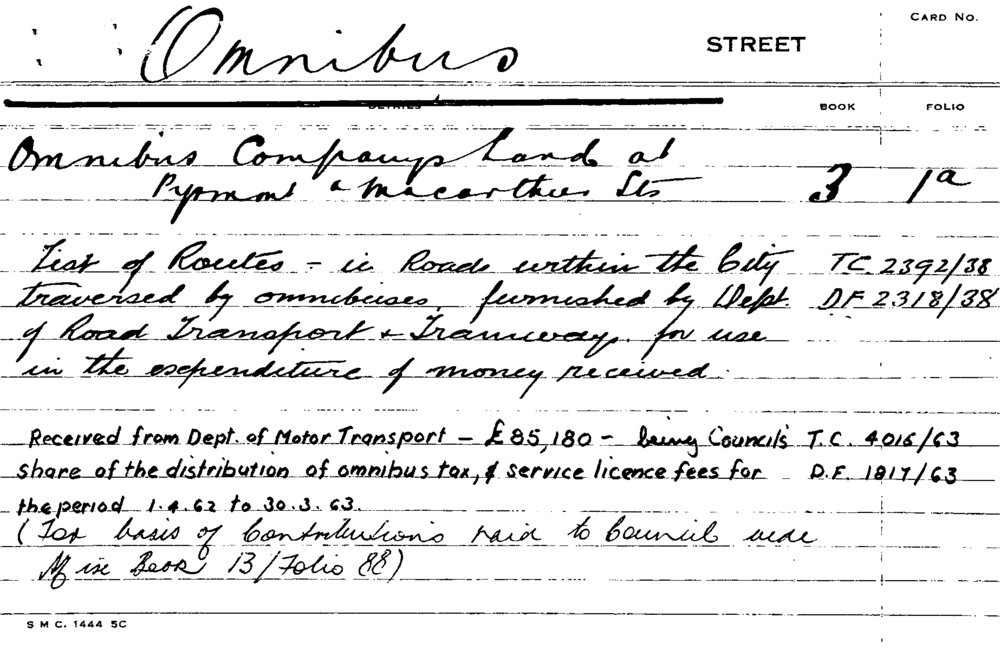 CARD NO.
Omnibus STREET
DETAILS BOOK FOLIO
Omnibus Companys Land at
Pyrmont & Macarthur Sts 3 1a
List of Routes - ie Roads within the City TC. 2392/38
traversed by omnibuses, furnished by Dept. DF 2318/38
of Road Transport & Tramways for use
in the expenditure of money received.
Received from Dept. of Motor Transport - £85,180 - being Council's T.C. 4016/63
share of the distribution of omnibus tax, & service licence fees for D.F. 1817/63
the period 1.4.62 to 30.3.63.
(For basis of Contributions paid to Council vide
in Book 13/Folio 88)
S M C. 1444 5C